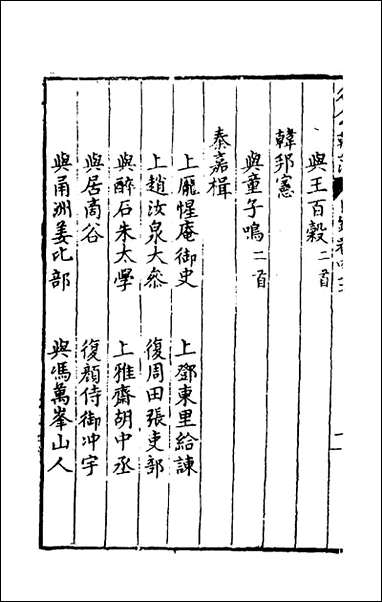 與王百穀二首
韓邦憲
與童子鳴二首
秦嘉楫
上龎惺庵御史
上鄧東里給諫
上趙汝泉大叅
復周田張吏部
與醉石朱太學
上雅齋胡中丞
與居啇谷
復顏侍御冲宇
與甬洲姜比部
與馮萬峯山人